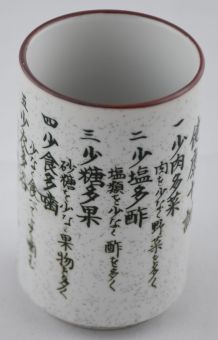 一少肉多菜
肉を少なく野菜を多く
二少塩多酢
塩類を少なく酢を多く
三少糖多果
砂糖を少なく果物を多く
四少食多齟
少なく食べて
五少衣多浴